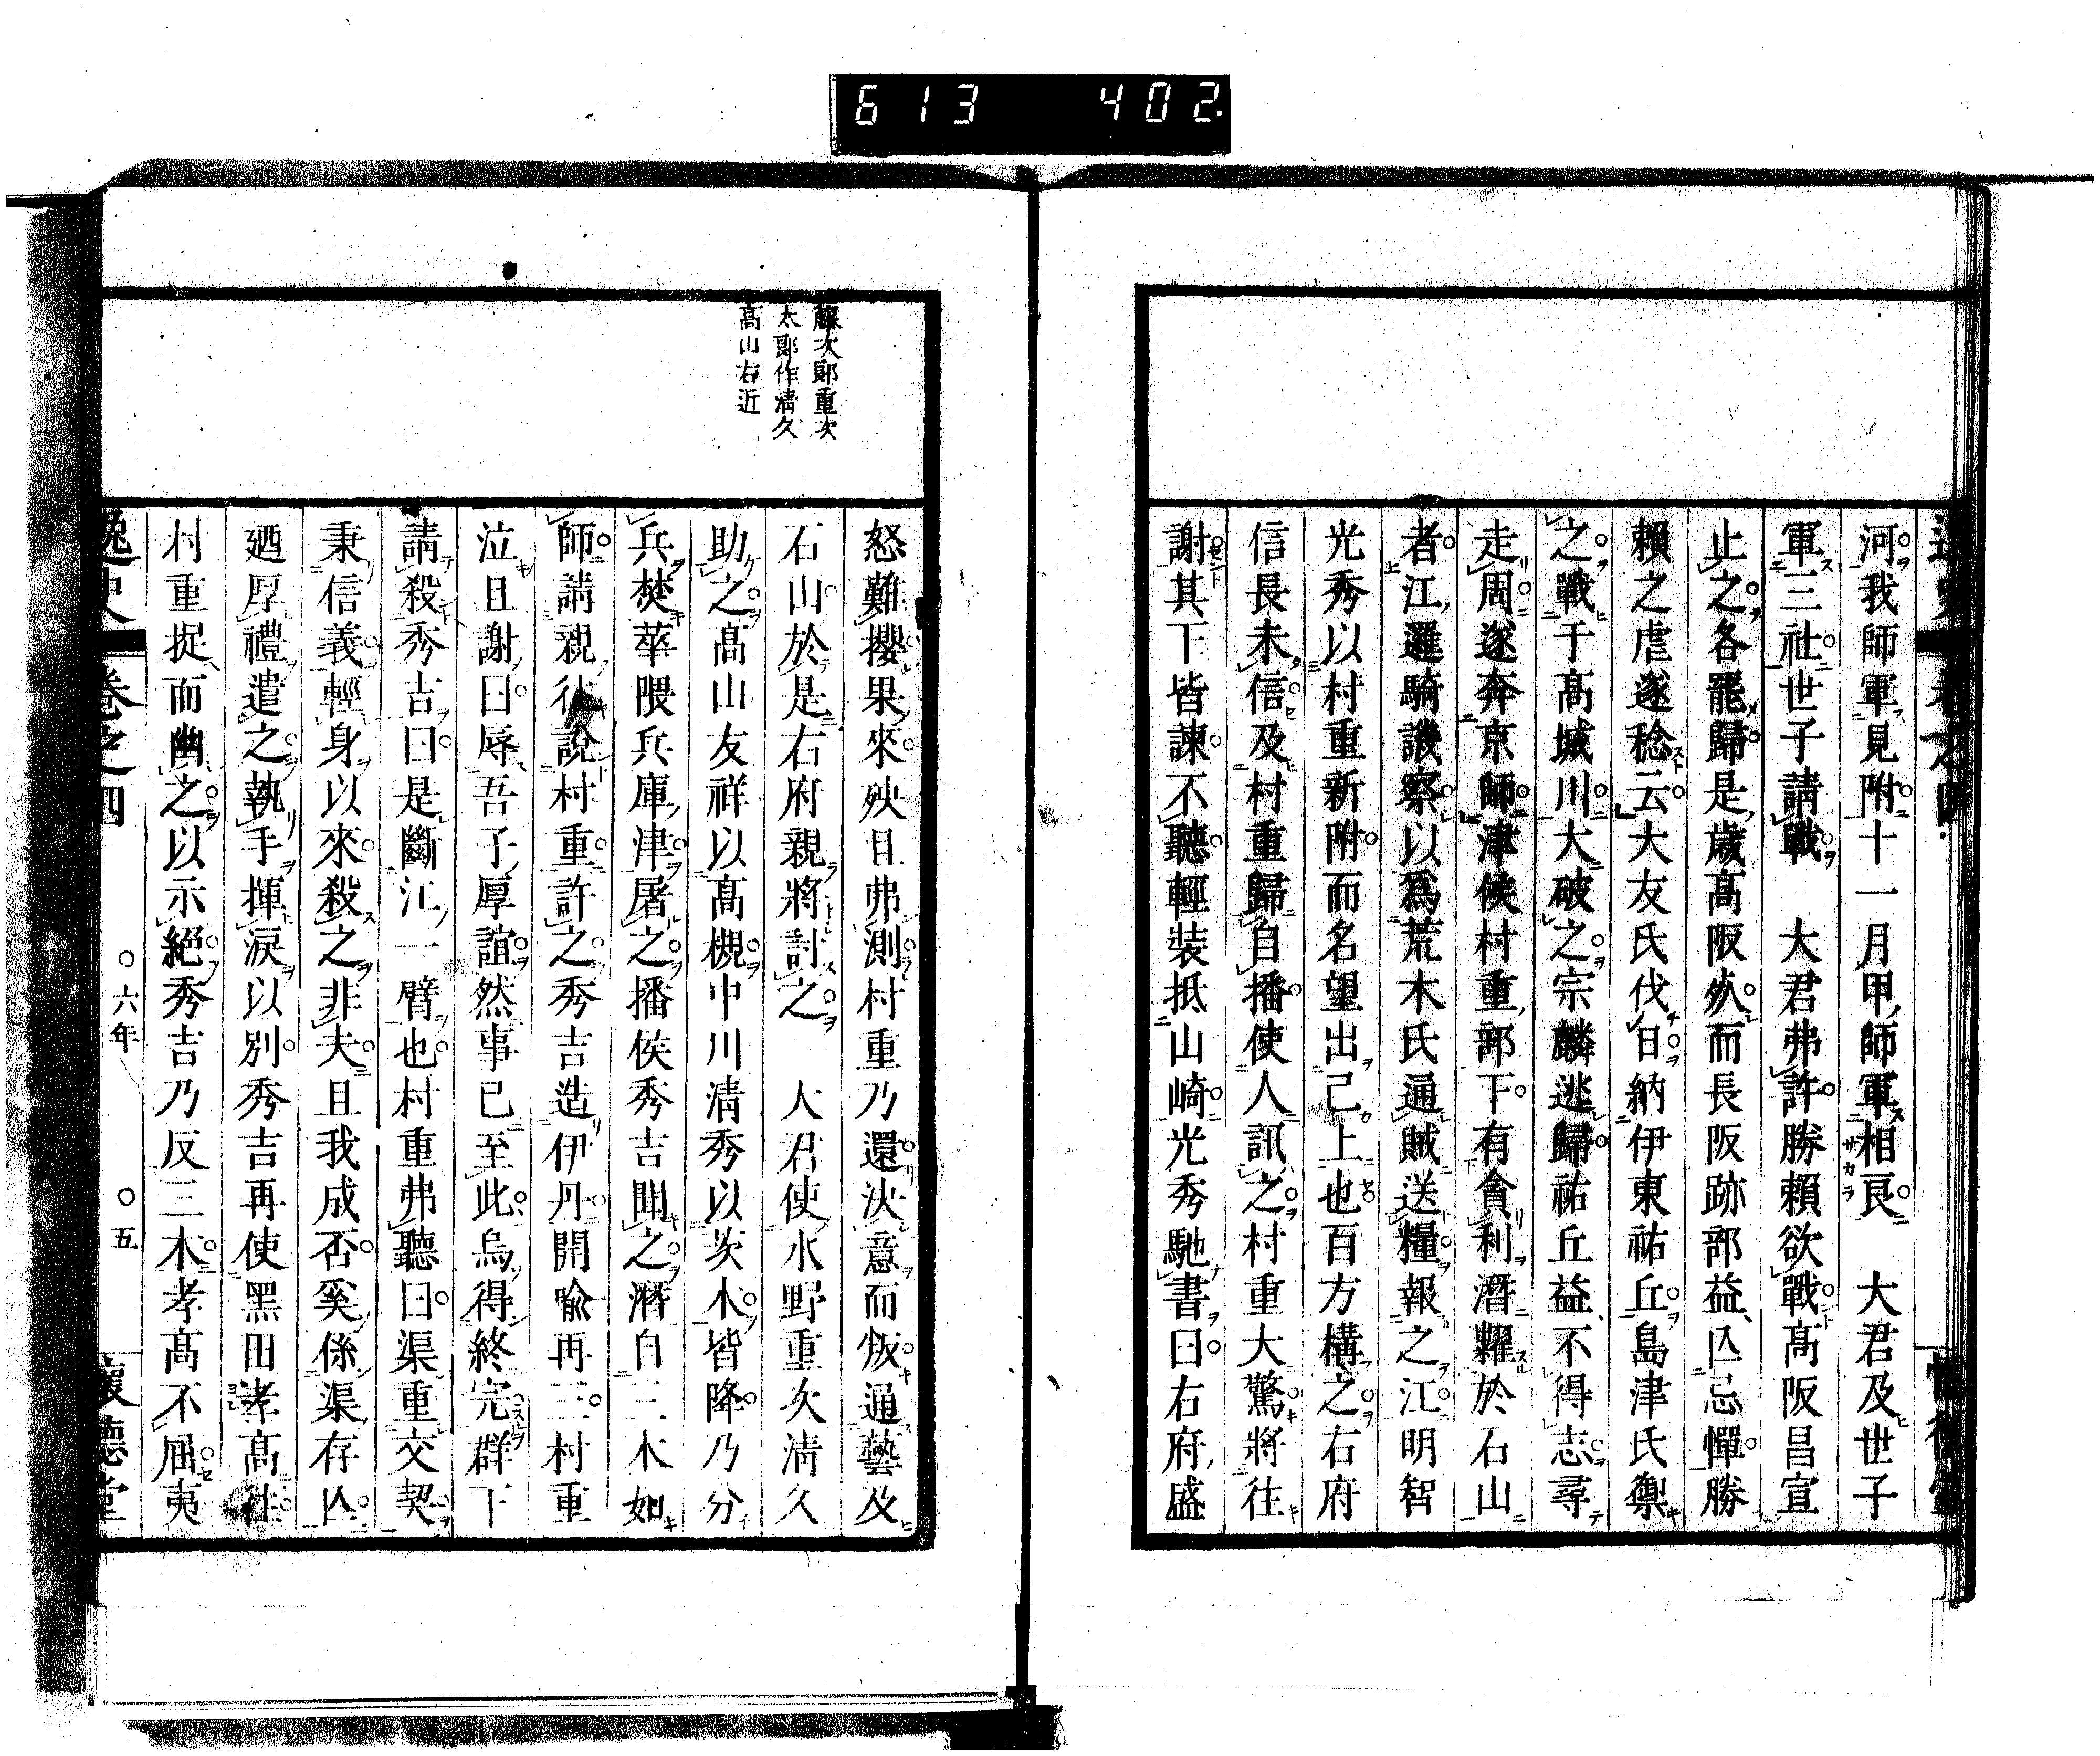 613 402.
逸史 卷之四 懷德堂
河我師軍見附十一月甲師軍相良 大君及世子
軍三社世子請戰 大君弗許勝賴欲戰高阪昌宣
止之各罷歸是歲高阪歿而長阪跡部益亾忌憚勝
賴之虐遂稔云大友氏伐日納伊東祐丘島津氏禦
之戰于高城川大破之宗麟逃歸祐丘益不得志尋
走周遂奔京師津侯村重部下有貪利潛糶於石山
者江邏騎譏察以爲荒木氏通賊送糧報之江明智
光秀以村重新附而名望出己上也百方構之右府
信長未信及村重歸自播使人訊之村重大驚將往
謝其下皆諫不聽輕裝抵山崎光秀馳書曰右府盛
藤次郎重次
太郎作清久
高山右近
怒難攖果來殃且弗測村重乃還決意而叛通藝及
石山於是右府親將討之 大君使水野重次清久
助之高山友祥以高槻中川清秀以茨木皆降乃分
兵焚華隈兵庫津屠之播侯秀吉聞之潛自三木如
師請親徃說村重許之秀吉造伊丹開喻再三村重
泣且謝曰辱吾子厚誼然事已至此烏得終完群下
請殺秀吉曰是斷江一臂也村重弗聽曰渠重交契
秉信義輕身以來殺之非夫且我成否奚係渠存亾
廼厚禮遣之執手揮淚以別秀吉再使黑田孝高徃
村重捉而幽之以示絕秀吉乃反三木孝高不屈夷
逸史 卷之四 ○六年 ○五 懷德堂